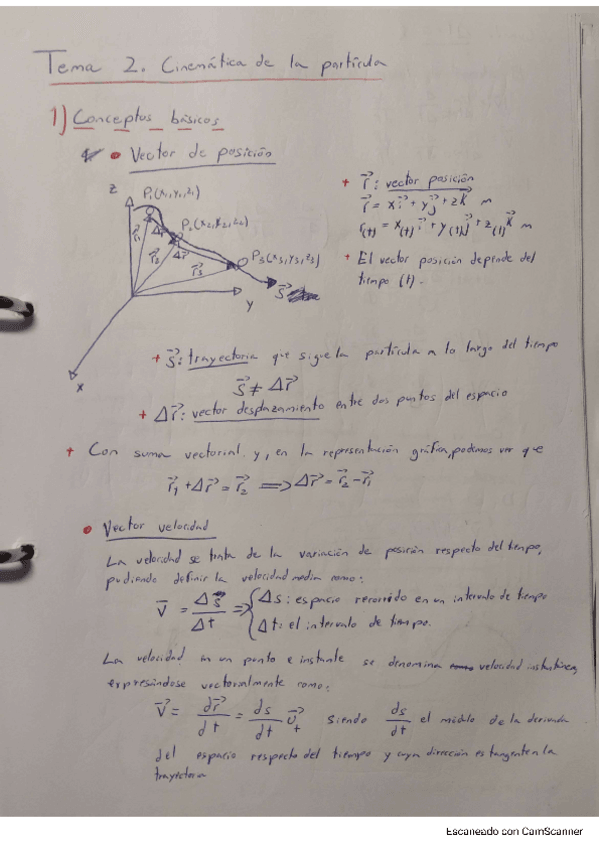 Tema 2. Cinemática de la partícula
1) Conceptos básicos
• Vector de posición
z
P₁(x₁,y₁,z₁)
P₂(x₂,y₂,z₂)
P₃(x₃,y₃,z₃)
r⃗₁ Δr⃗ r⃗₂ Δr⃗ r⃗₃
S⃗
y
x
+ r⃗: vector posición
r⃗ = x i⃗ + y j⃗ + z k⃗ m
r(t) = x(t) i⃗ + y(t) j⃗ + z(t) k⃗ m
+ El vector posición depende del
tiempo (t).
+ S⃗: trayectoria que sigue la partícula a lo largo del tiempo
S⃗ ≠ Δr⃗
+ Δr⃗: vector desplazamiento entre dos puntos del espacio
+ Con suma vectorial y, en la representación gráfica, podemos ver que
r⃗₁ + Δr⃗ = r⃗₂ ⟹ Δr⃗ = r⃗₂ - r⃗₁
• Vector velocidad
La velocidad se trata de la variación de posición respecto del tiempo,
pudiendo definir la velocidad media como:
v̅ = Δs/Δt ⟹ { Δs: espacio recorrido en un intervalo de tiempo
Δt: el intervalo de tiempo.
La velocidad en un punto e instante se denomina velocidad instantánea,
expresándose vectorialmente como:
v⃗ = dr⃗/dt = ds/dt u⃗t siendo ds/dt el módulo de la derivada
del espacio respecto del tiempo y cuya dirección es tangente a la
trayectoria
Escaneado con CamScanner